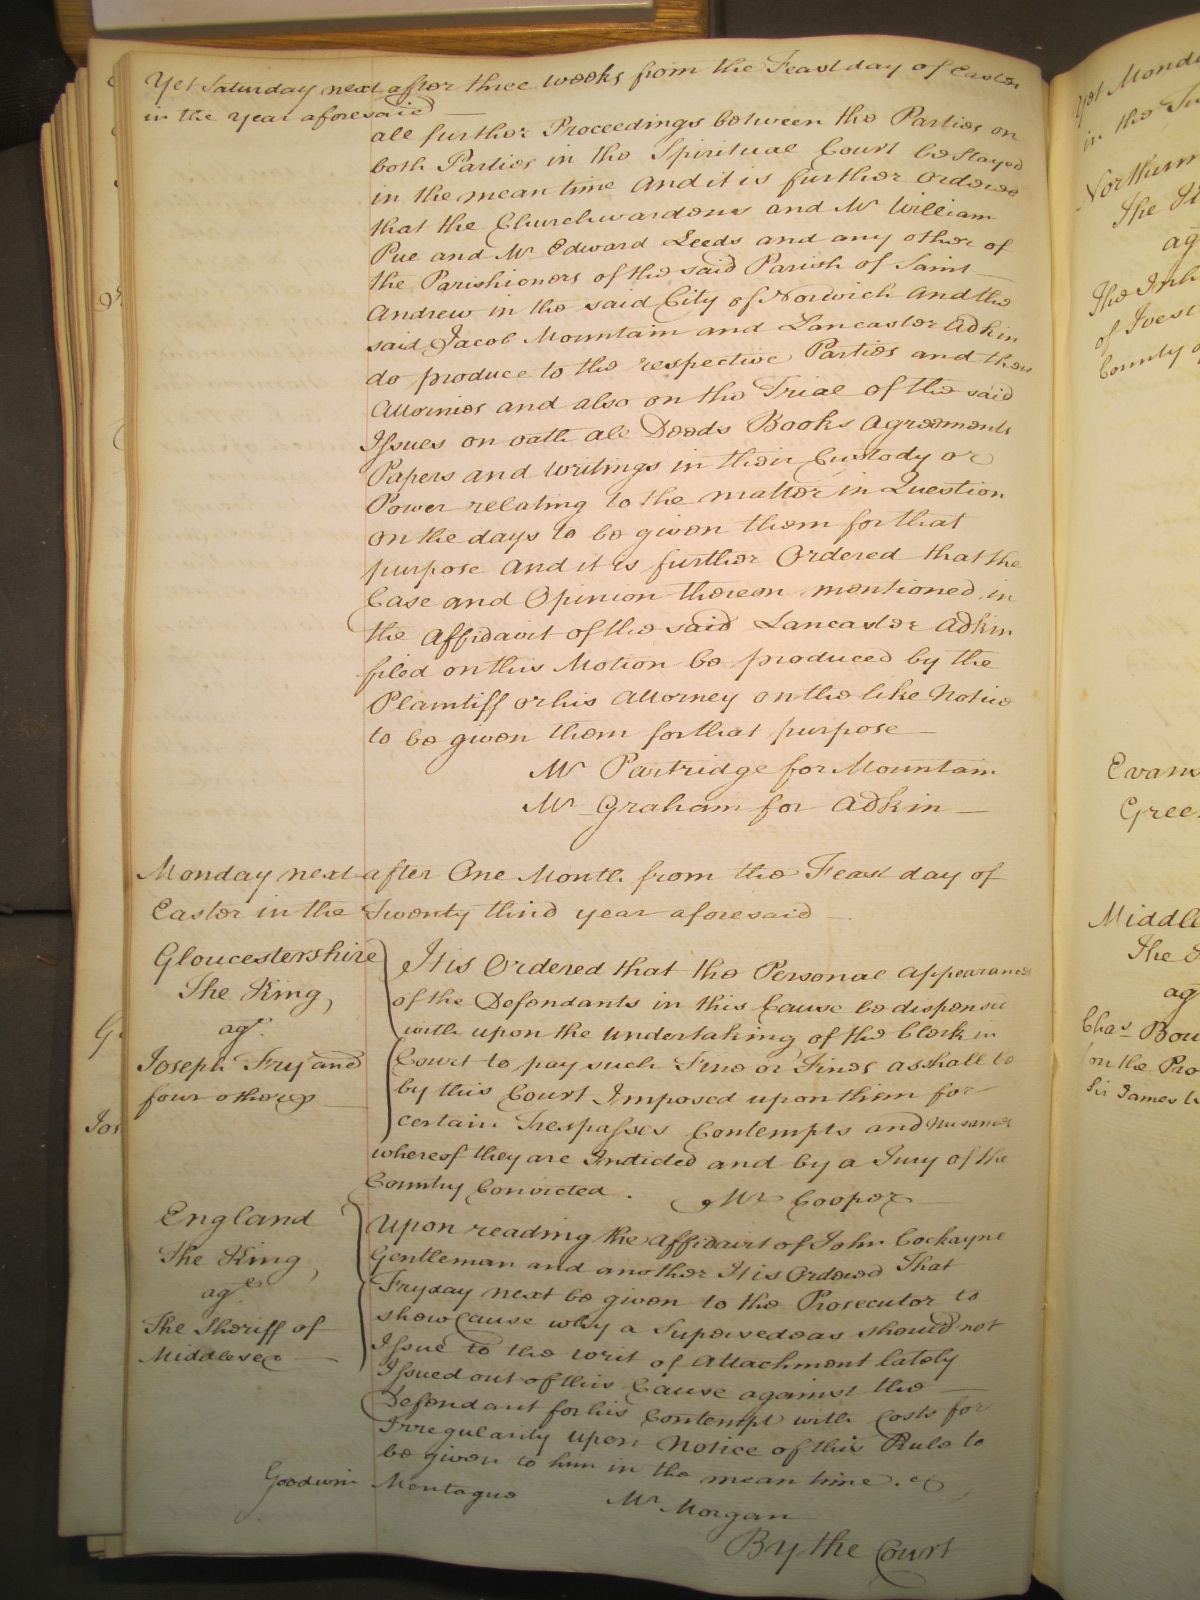 Yet Saturday next after three weeks from the Feast day of Easter
in the year aforesaid
all further Proceedings between the Parties on
both Parties in the Spiritual Court be stayed
in the mean time And it is further Ordered
that the Churchwardens and Mr William
Pue and Mr Edward Leeds and any other of
the Parishioners of the said Parish of Saint
Andrew in the said City of Norwich And the
said Jacob Mountain and Lancaster Adkin
do produce to the respective Parties and their
Attornies and also on the Trial of the said
Issues on oath all Deeds Books Agreements
Papers and Writings in their Custody or
Power relating to the matter in Question
on the days to be given them for that
purpose And it is further Ordered that the
Case and Opinion thereon mentioned in
the Affidavit of the said Lancaster Adkin
filed on this Motion be produced by the
Plaintiff or his Attorney on the like Notice
to be given them for that purpose
Mr Partridge for Mountain
Mr Graham for Adkin
Monday next after One Month from the Feast day of
Easter in the Twenty third year aforesaid
Gloucestershire
The King
agt
Joseph Fry and
four others
It is Ordered that the Personal Appearance
of the Defendants in this Cause be dispensed
with upon the Undertaking of the Clerk in
Court to pay such Fine or Fines as shall be
by this Court Imposed upon them for
certain Trespasses Contempts and Nusances
whereof they are Indicted and by a Jury of the
Country Convicted. Mr Cooper
England
The King
agt
The Sheriff of
Middlesex
Upon reading the Affidavit of John Cockayne
Gentleman and another It is Ordered That
Fryday next be given to the Prosecutor to
show Cause why a Supersedeas should not
Issue to the Writ of Attachment lately
Issued out of this Cause against the
Defendant for his Contempt with Costs for
Irregularity upon Notice of this Rule to
be given to him in the mean time.
Goodwin Montague Mr Morgan
By the Court
Yet Monda
in the
Northum
The
ag
The Inh
of
County o
Evans
Gree
Middle
The
ag
Chas Bou
on the Pro
Sir James